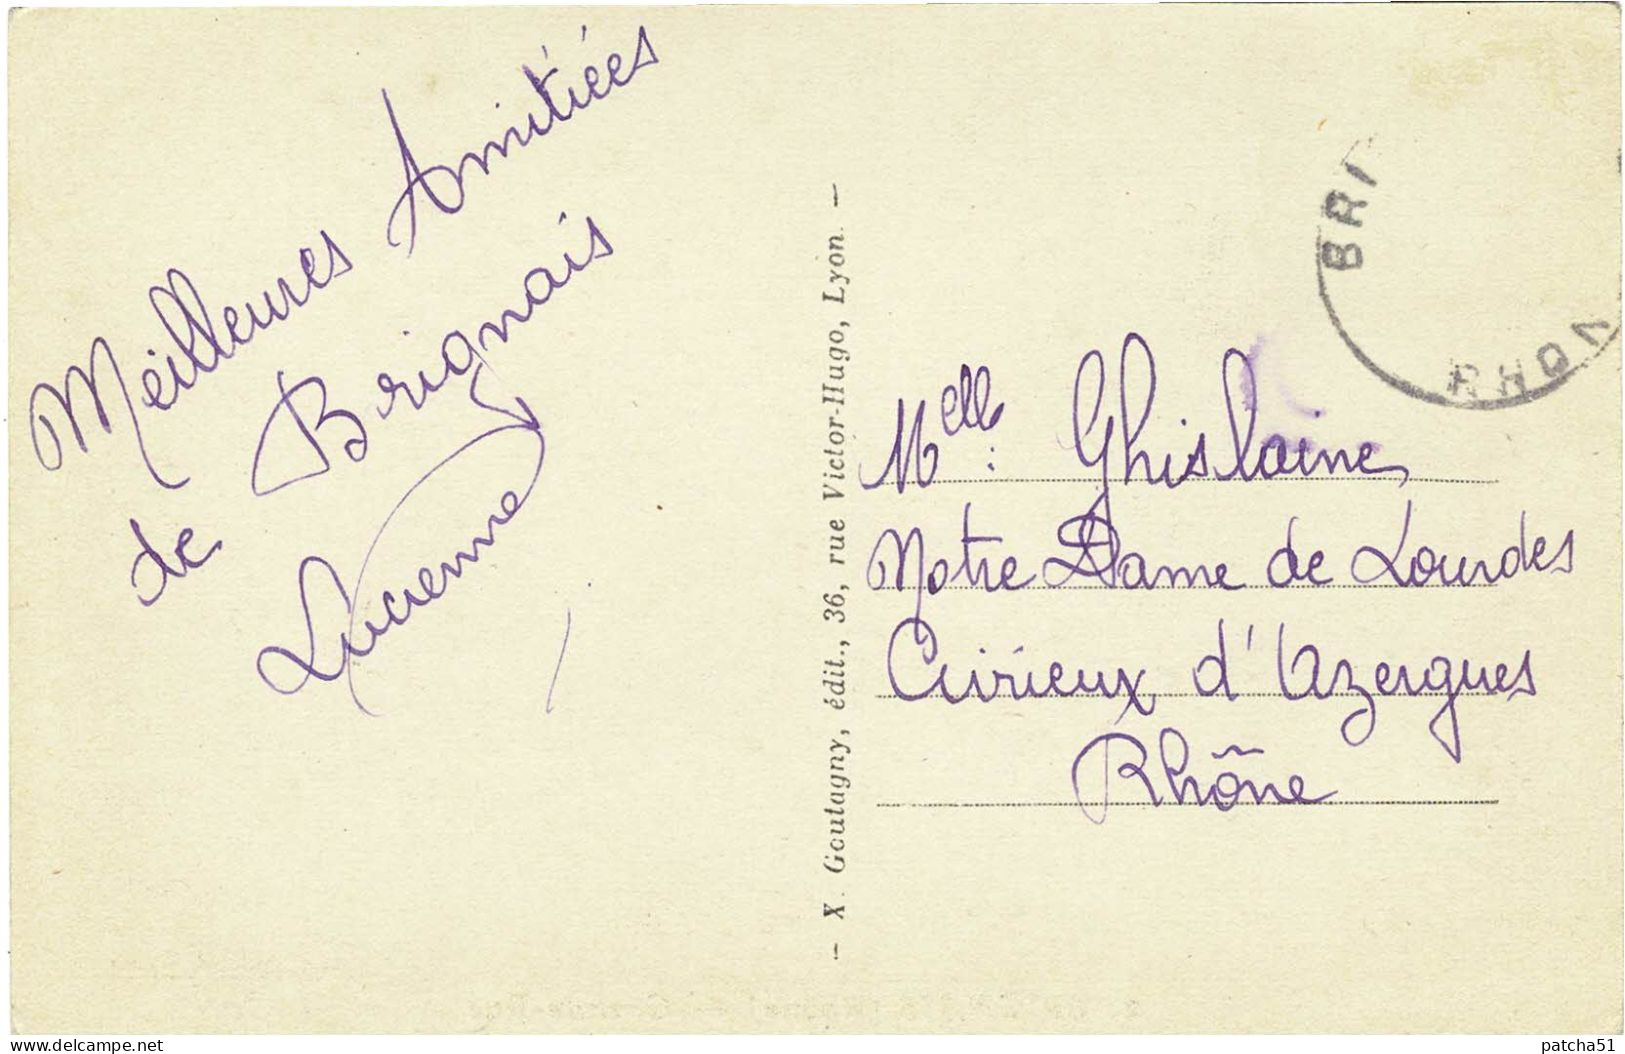 Meilleures Amitiées
de Brignais
Lucienne
— X. Goutagny, édit., 36, rue Victor-Hugo, Lyon. —
BRI
RHON
Melle: Ghislaine
Notre Dame de Lourdes
Civrieux d'Azergues
Rhône
www.delcampe.net
patcha51